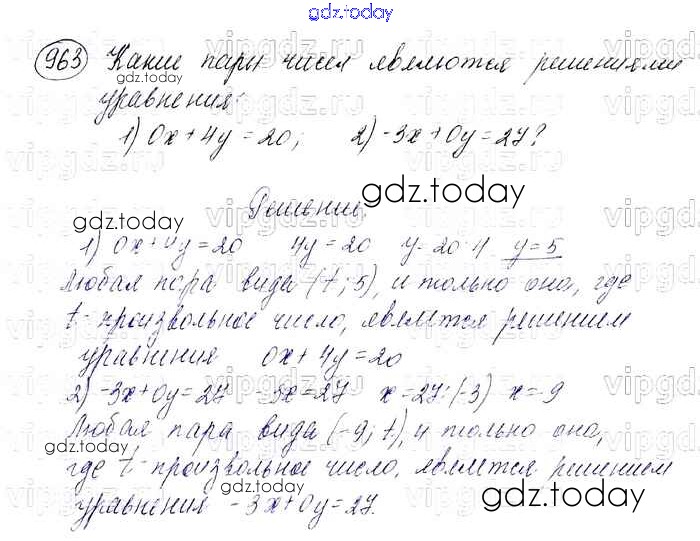 gdz.today
963 Какие пары чисел являются решениями
gdz.today
уравнения:
1) 0x + 4y = 20; 2) -3x + 0y = 27?
gdz.today
Решение.
gdz.today
1) 0x + 4y = 20 4y = 20 y = 20:4 y = 5
Любая пара вида (t; 5), и только она, где
t - произвольное число, является решением
уравнения 0x + 4y = 20
2) -3x + 0y = 27 -3x = 27 x = 27:(-3) x = -9
Любая пара вида (-9; t), и только она,
где t - произвольное число, является решением
gdz.today
уравнения -3x + 0y = 27.
gdz.today